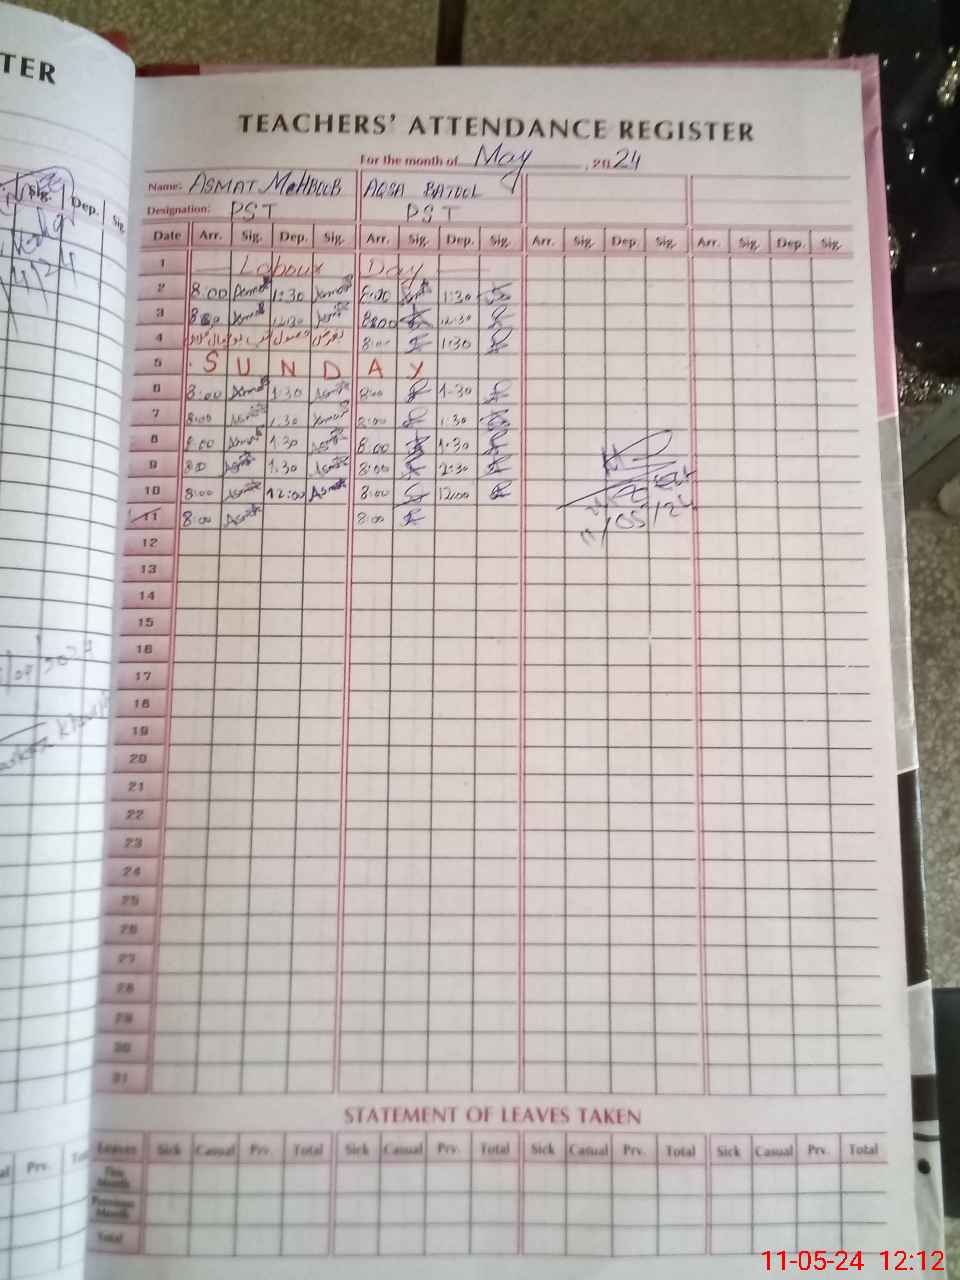 TER
TEACHERS' ATTENDANCE REGISTER
For the month of May , 2024
Name: ASMAT MEHBOOB AQSA BATOOL
Designation: PST PST
Dep. Sig.
Date Arr. Sig. Dep. Sig. Arr. Sig. Dep. Sig. Arr. Sig. Dep. Sig. Arr. Sig. Dep. Sig.
1 Labour Day
2 8:00 Asmat 1:30 Asmat 8:00 1:30
3 8:00 Asmat 12:30 Asmat 8:00 12:30
4 8:00 1:30
5 SUNDAY
6 8:00 Asmat 1:30 Asmat 8:00 1:30
7 8:00 Asmat 1:30 Asmat 8:00 1:30
8 8:00 Asmat 1:30 Asmat 8:00 1:30
9 8:00 Asmat 1:30 Asmat 8:00 1:30
10 8:00 Asmat 12:00 Asmat 8:00 12:00
11 8:00 Asmat 8:00
11/05/24
12
13
14
15
16
17
18
19
20
21
22
23
24
25
26
27
28
29
30
31
STATEMENT OF LEAVES TAKEN
Leaves Sick Casual Prv. Total Sick Casual Prv. Total Sick Casual Prv. Total Sick Casual Prv. Total
Prv.
This Month
Previous Month
Total
11-05-24 12:12